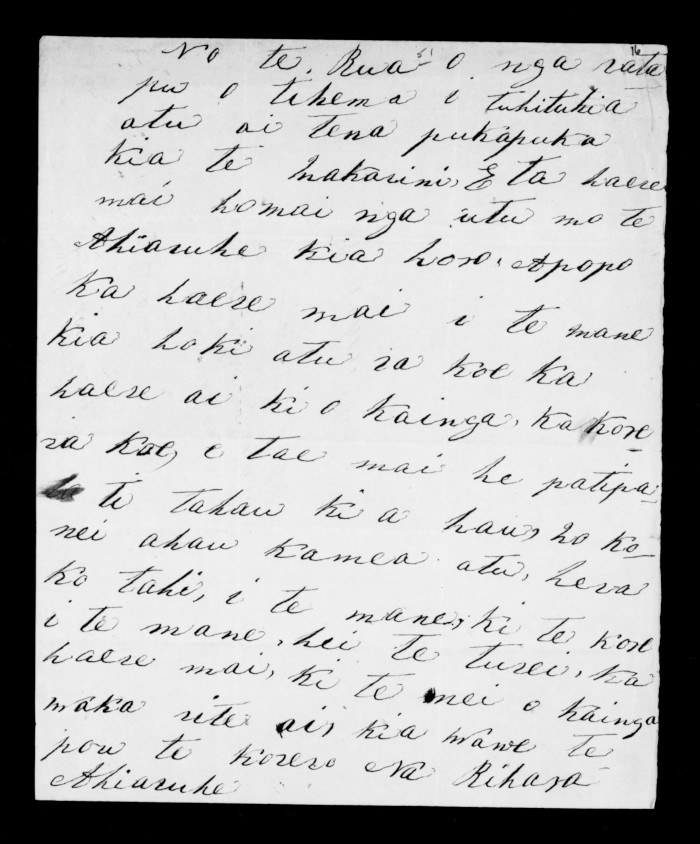 16
No te Rua o nga rata
pu o tihema i tuhituhia
atu ai tena pukapuka
kia te Makarini, E ta haere
mai homai nga utu mo te
Ahiaruhe kia horo. Apopo
ka haere mai i te mane
kia hoki atu ra koe ka
haere ai ki o kainga, ka kore
ra koe, e tae mai he patipa-
ti tahau ki a hau, ho ko-
nei ahau kamea atu, hera
ko tahi, i te mane, ki te kore
i te mane, hei te turei, ka
haere mai, ki te mei o kainga
maka rite ai, kia wawe te
pou te korero Na Rihara
Ahiaruhe